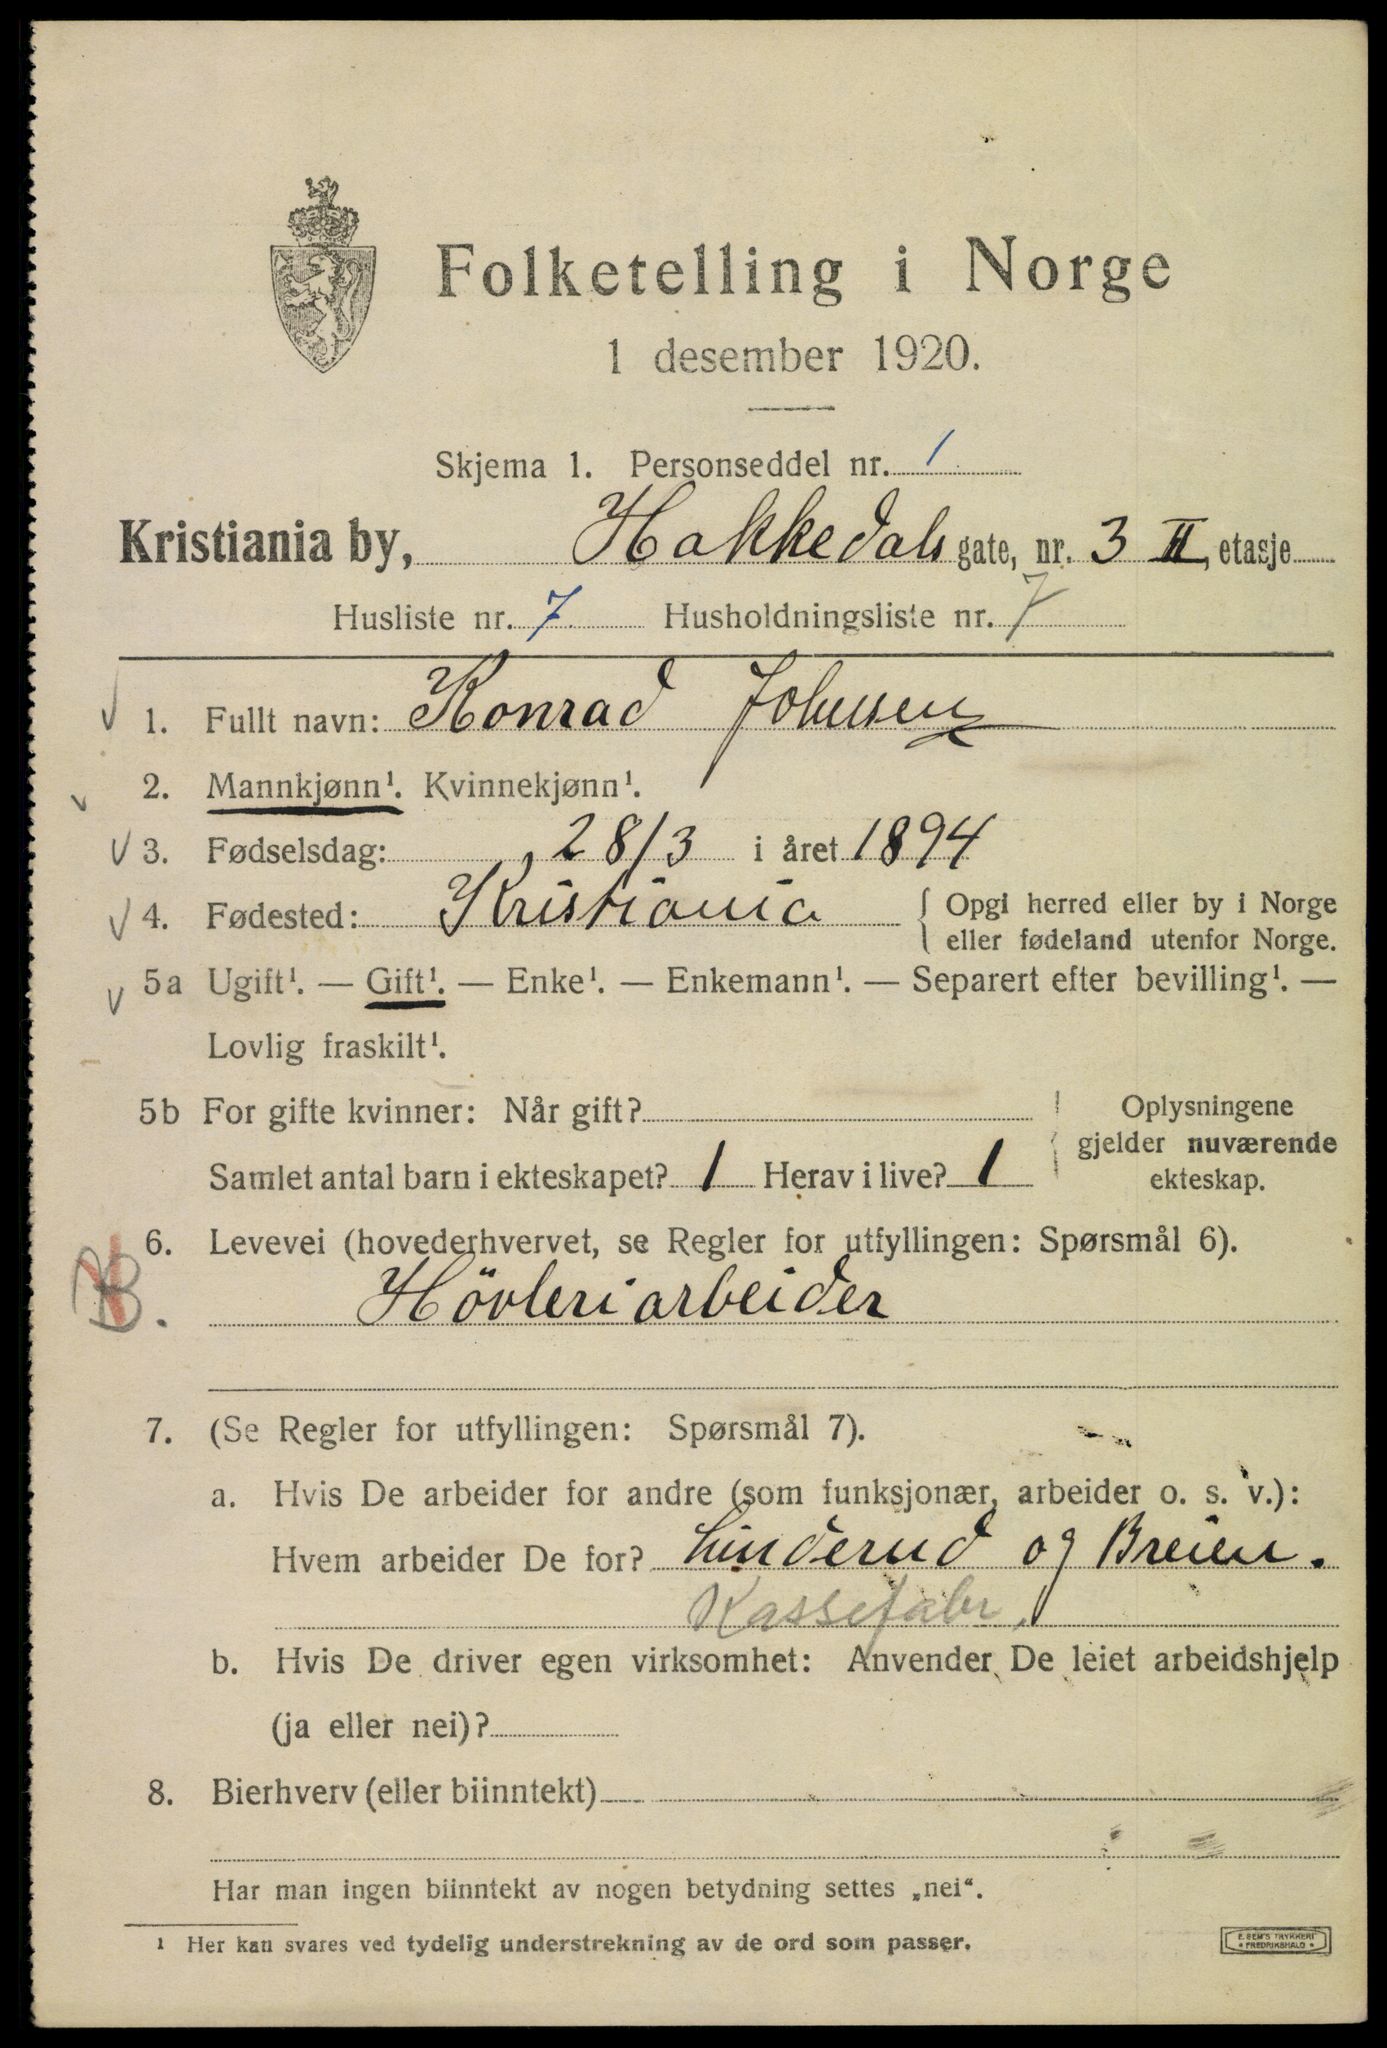 Folketelling i Norge
1 desember 1920.
Skjema 1. Personseddel nr. 1
Kristiania by, Hakkedals gate, nr. 3 II, etasje
Husliste nr. 7 Husholdningsliste nr. 7
1. Fullt navn: Konrad Johnsen
2. Mannkjønn¹. Kvinnekjønn¹.
3. Fødselsdag: 28/3 i året 1894
4. Fødested: Kristiania { Opgi herred eller by i Norge
eller fødeland utenfor Norge.
5a Ugift¹. — Gift¹. — Enke¹. — Enkemann¹. — Separert efter bevilling¹. —
Lovlig fraskilt¹.
5b For gifte kvinner: Når gift?
Samlet antal barn i ekteskapet? 1 Herav i live? 1
Oplysningene
gjelder nuværende
ekteskap.
6. Levevei (hovederhvervet, se Regler for utfyllingen: Spørsmål 6).
Hövleriarbeider
7. (Se Regler for utfyllingen: Spørsmål 7).
a. Hvis De arbeider for andre (som funksjonær, arbeider o. s. v.):
Hvem arbeider De for? Linderud og Breien.
Kassefabr.
b. Hvis De driver egen virksomhet: Anvender De leiet arbeidshjelp
(ja eller nei)?
8. Bierhverv (eller biinntekt)
Har man ingen biinntekt av nogen betydning settes „nei".
¹ Her kan svares ved tydelig understrekning av de ord som passer.
E. SEM'S TRYKKERI
• FREDRIKSHALD •